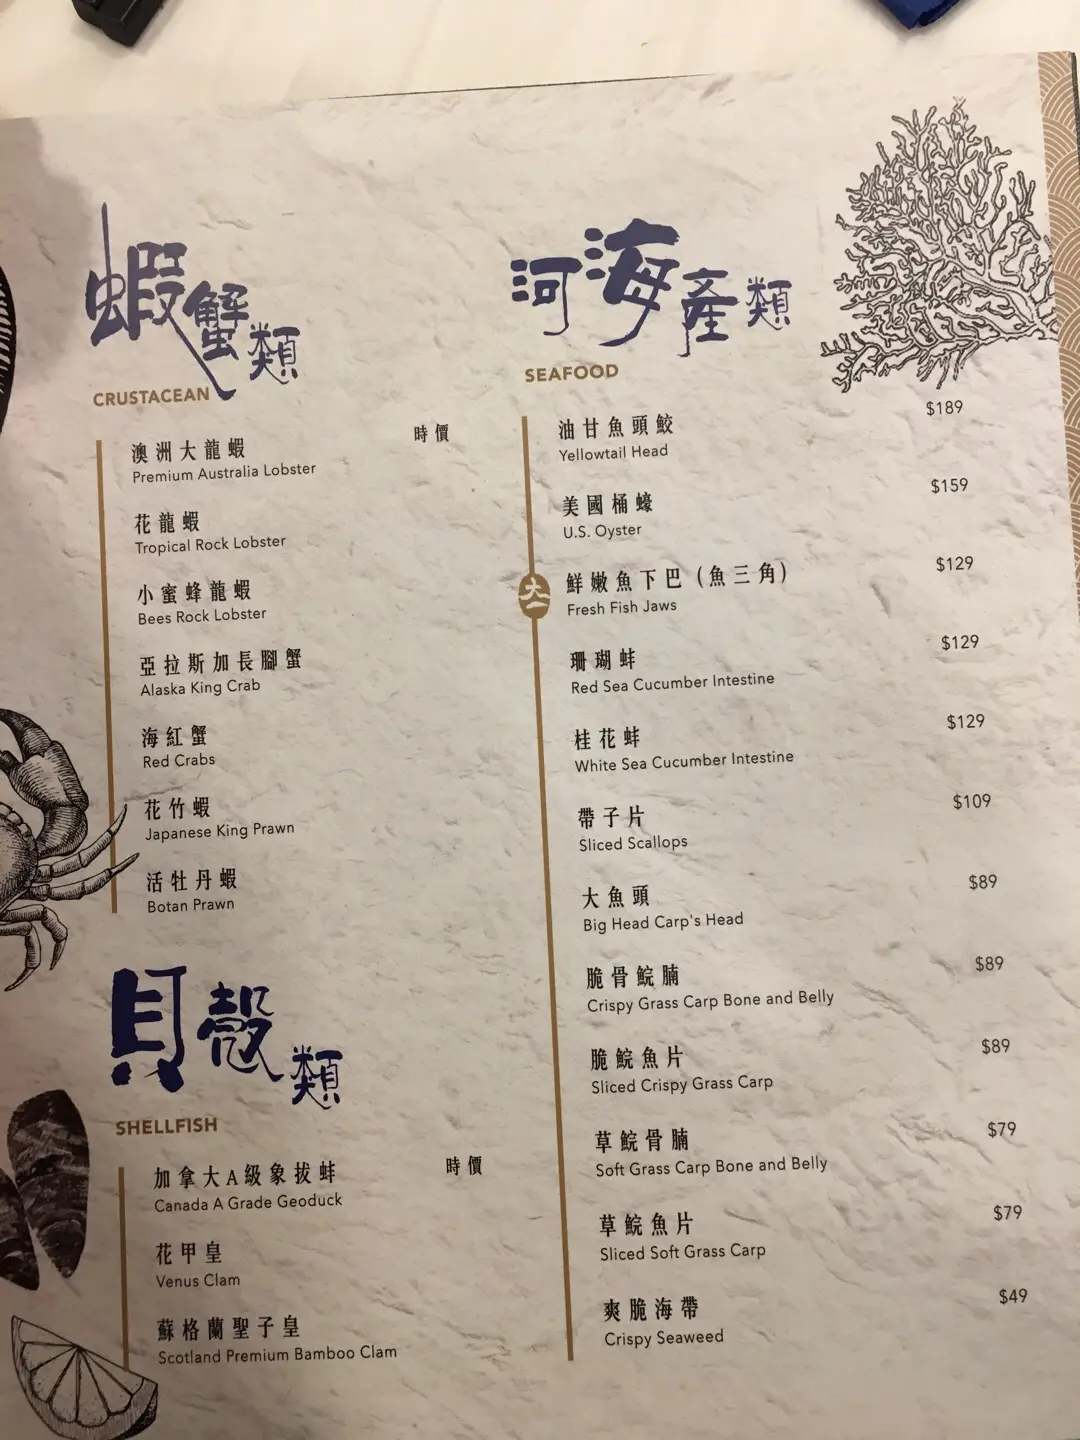 蝦蟹類
CRUSTACEAN
澳洲大龍蝦 時價
Premium Australia Lobster
花龍蝦
Tropical Rock Lobster
小蜜蜂龍蝦
Bees Rock Lobster
亞拉斯加長腳蟹
Alaska King Crab
海紅蟹
Red Crabs
花竹蝦
Japanese King Prawn
活牡丹蝦
Botan Prawn
貝殼類
SHELLFISH
加拿大A級象拔蚌 時價
Canada A Grade Geoduck
花甲皇
Venus Clam
蘇格蘭聖子皇
Scotland Premium Bamboo Clam
河海產類
SEAFOOD
油甘魚頭鮫 $189
Yellowtail Head
美國桶蠔 $159
U.S. Oyster
鮮嫩魚下巴 (魚三角) $129
Fresh Fish Jaws
珊瑚蚌 $129
Red Sea Cucumber Intestine
桂花蚌 $129
White Sea Cucumber Intestine
帶子片 $109
Sliced Scallops
大魚頭 $89
Big Head Carp's Head
脆骨鯇腩 $89
Crispy Grass Carp Bone and Belly
脆鯇魚片 $89
Sliced Crispy Grass Carp
草鯇骨腩 $79
Soft Grass Carp Bone and Belly
草鯇魚片 $79
Sliced Soft Grass Carp
爽脆海帶 $49
Crispy Seaweed